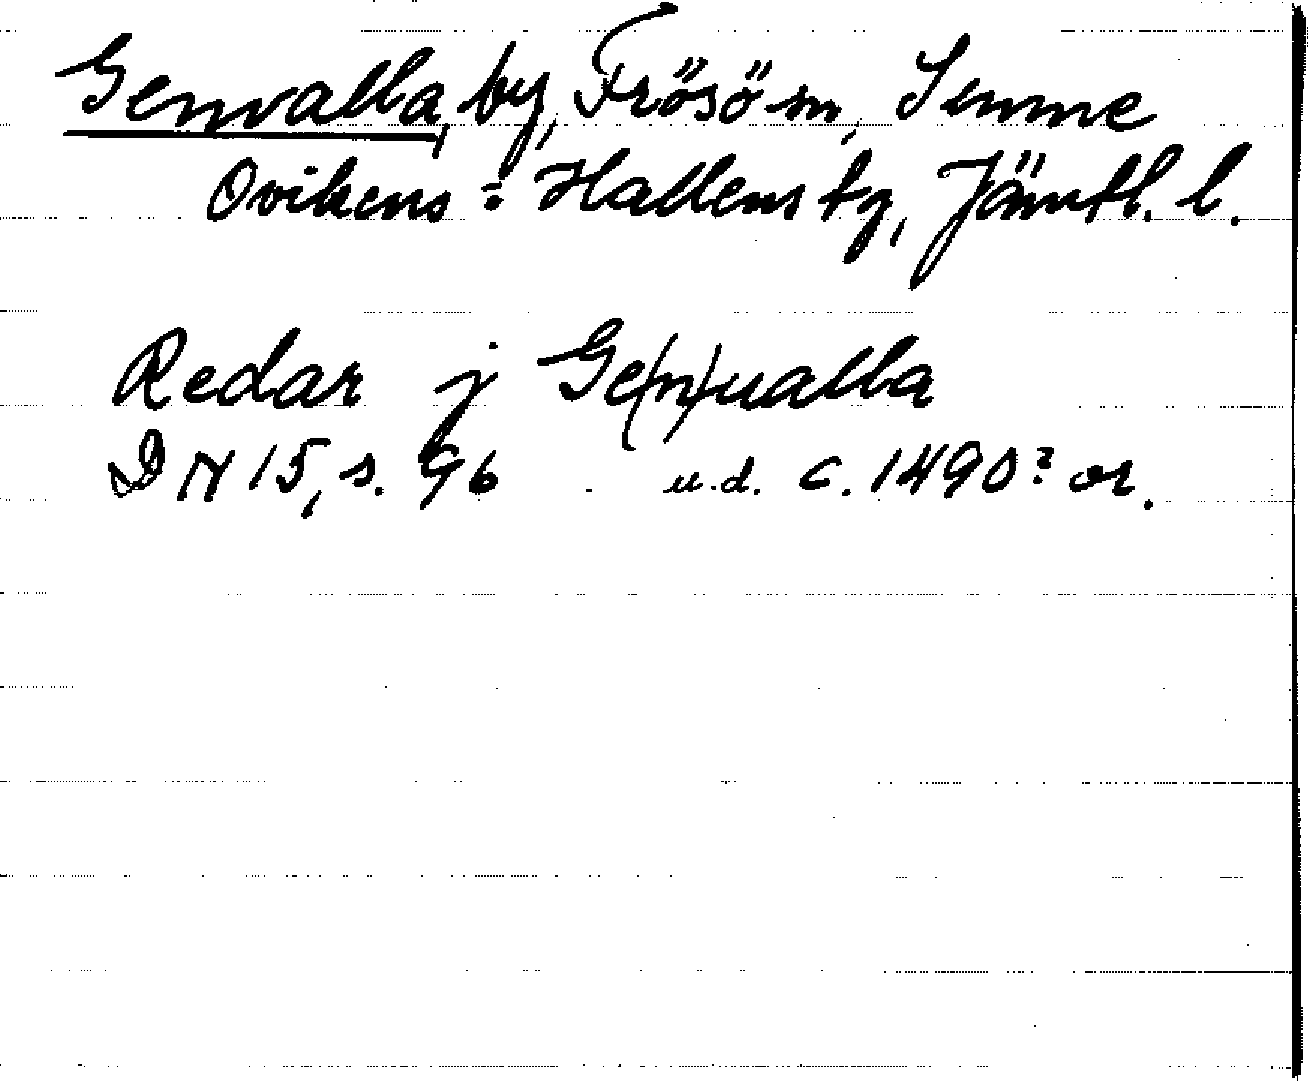 Genvalla, by, Frösö sn, Sunne
Ovikens - Hallens tg, Jämtl. l.
Redar j Ge(n)ualla
DN 15, s. 96 u.d. c. 1490? or.